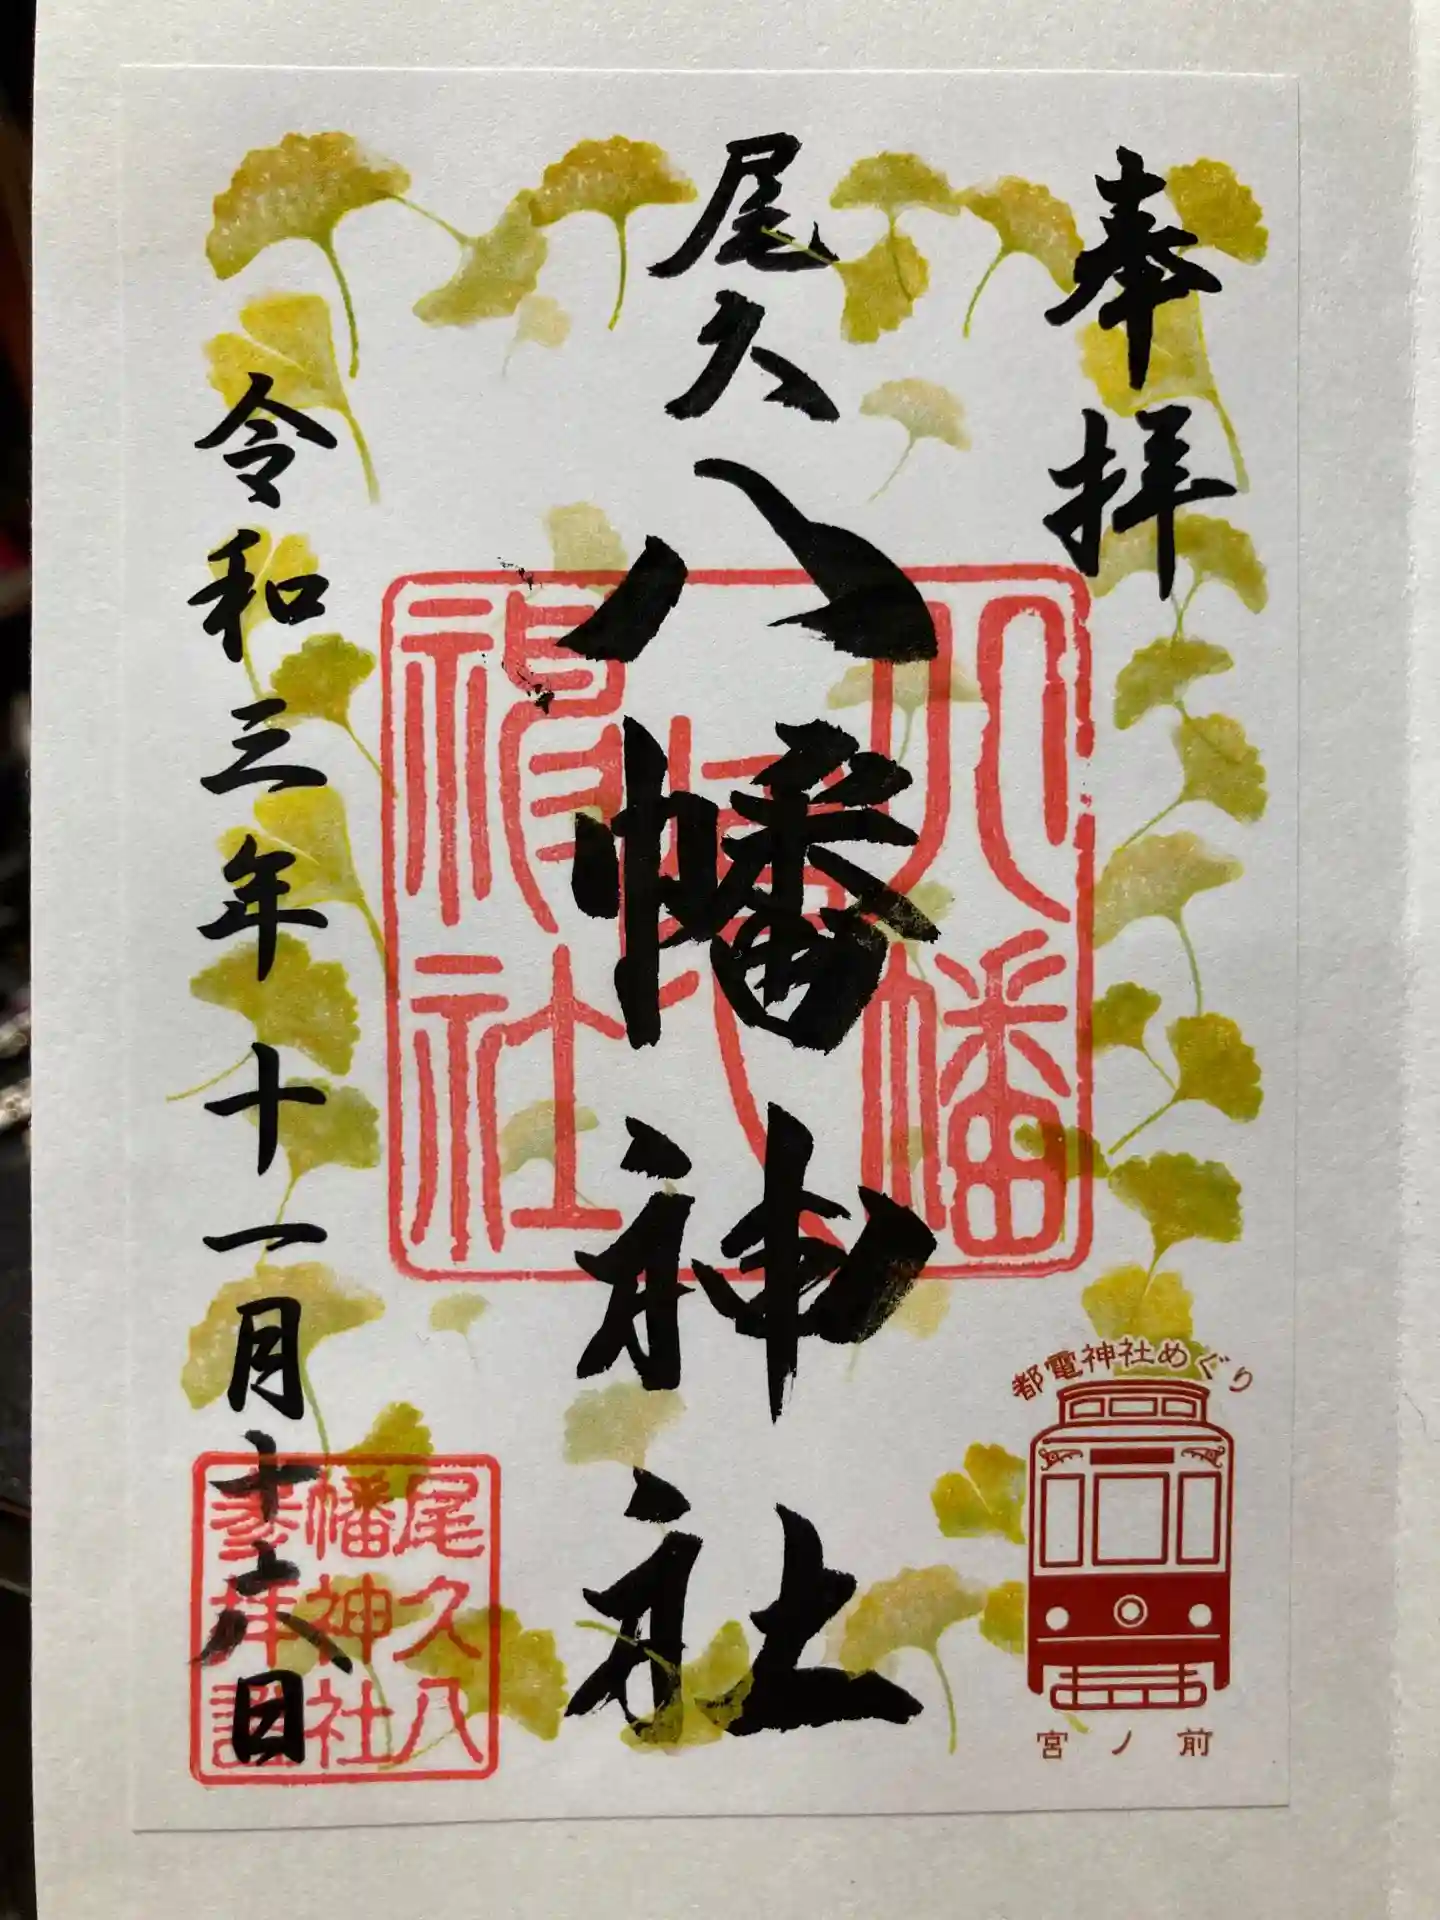 奉拝
尾久八幡神社
八幡
神社
令和三年十一月十六日
尾久八
幡神社
参拝證
都電神社めぐり
宮ノ前